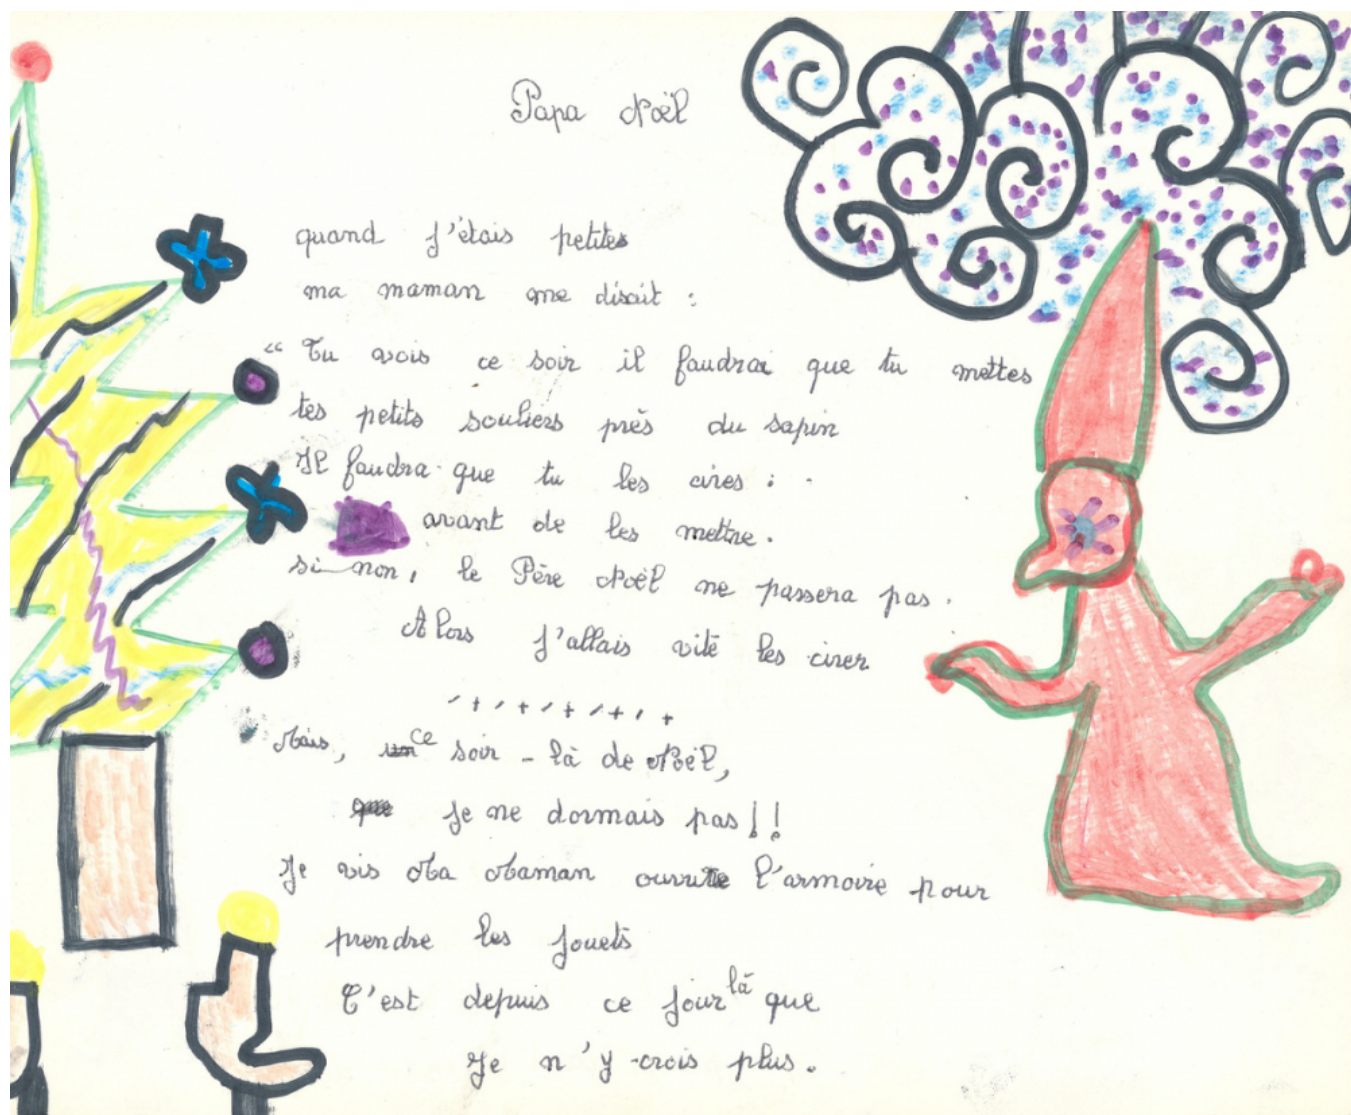 Papa Noël
quand j'étais petites
ma maman me disait :
“ Tu vois ce soir il faudrai que tu mettes
tes petits souliers près du sapin
Il faudra que tu les cires :
avant de les mettre.
si non, le Père Noël ne passera pas.
Alors j'allais vite les cirer
Mais, ce soir - là de Noël,
je ne dormais pas !!
Je vis Ma Maman ouvrire l'armoire pour
prendre les jouets
C'est depuis ce jour là que
Je n'y crois plus.